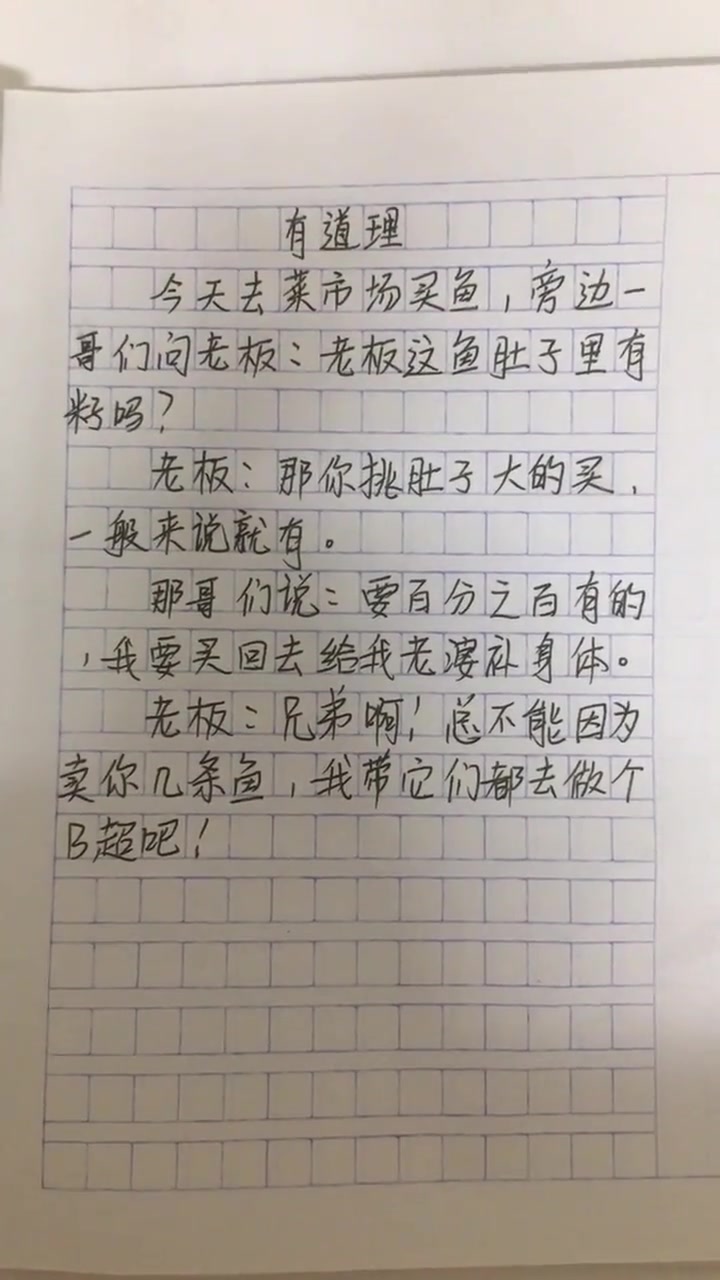 有道理
今天去菜市场买鱼，旁边一
哥们问老板：老板这鱼肚子里有
籽吗？
老板：那你挑肚子大的买，
一般来说就有。
那哥们说：要百分之百有的
，我要买回去给我老婆补身体。
老板：兄弟啊！总不能因为
卖你几条鱼，我带它们都去做个
B超吧！